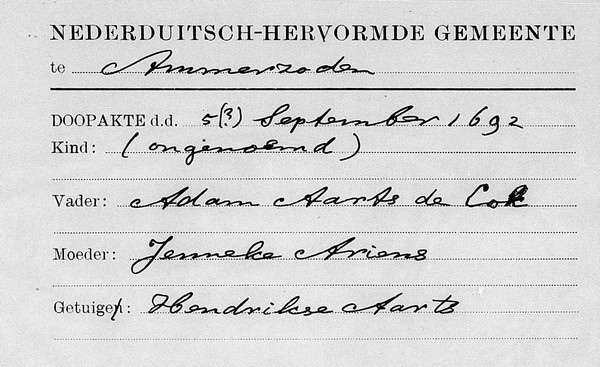 NEDERDUITSCH-HERVORMDE GEMEENTE
te Ammerzoden
DOOPAKTE d.d. 5(?) September 1692
Kind: (ongenoemd)
Vader: Adam Aarts de Cok
Moeder: Jenneke Ariens
Getuigen: Hendrikse Aarts